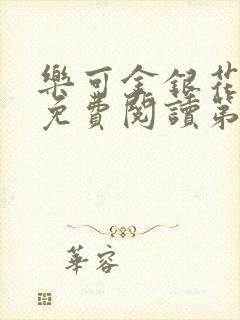 樂可金銀花
免費閱讀第
華容